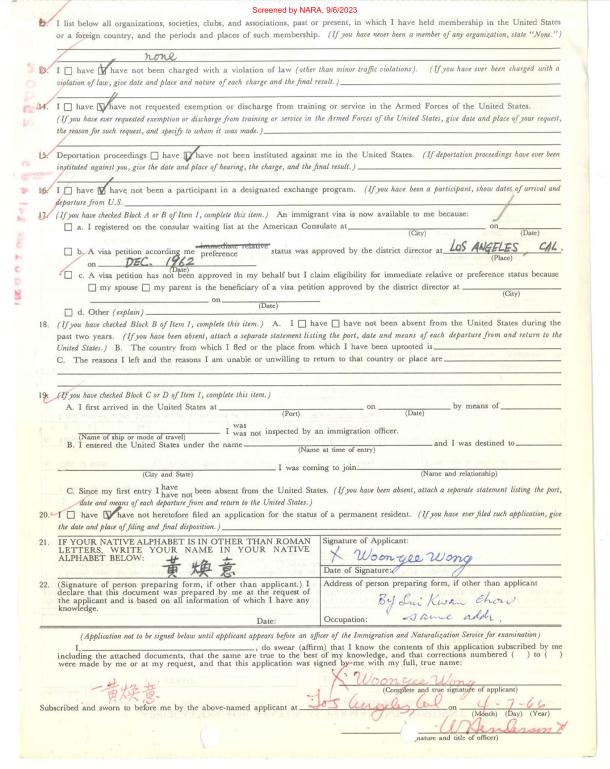 Screened by NARA, 9/6/2023
I list below all organizations, societies, clubs, and associations, past or present, in which I have held membership in the United States
or a foreign country, and the periods and places of such membership. (If you have never been a member of any organization, state "None.")
none
13. I ☐ have ☑ have not been charged with a violation of law (other than minor traffic violations). (If you have ever been charged with a
violation of law, give date and place and nature of each charge and the final result.)
14. I ☐ have ☑ have not requested exemption or discharge from training or service in the Armed Forces of the United States.
(If you have ever requested exemption or discharge from training or service in the Armed Forces of the United States, give date and place of your request,
the reason for such request, and specify to whom it was made.)
15. Deportation proceedings ☐ have ☑ have not been instituted against me in the United States. (If deportation proceedings have ever been
instituted against you, give the date and place of hearing, the charge, and the final result.)
16. I ☐ have ☑ have not been a participant in a designated exchange program. (If you have been a participant, show dates of arrival and
departure from U.S.
17. (If you have checked Block A or B of Item 1, complete this item.) An immigrant visa is now available to me because:
☐ a. I registered on the consular waiting list at the American Consulate at on
(City) (Date)
☐ b. A visa petition according me immediate relative preference status was approved by the district director at LOS ANGELES, CAL.
(Place)
on DEC. 1962
(Date)
☐ c. A visa petition has not been approved in my behalf but I claim eligibility for immediate relative or preference status because
☐ my spouse ☐ my parent is the beneficiary of a visa petition approved by the district director at
(City)
on
(Date)
☐ d. Other (explain)
18. (If you have checked Block B of Item 1, complete this item.) A. I ☐ have ☐ have not been absent from the United States during the
past two years. (If you have been absent, attach a separate statement listing the port, date and means of each departure from and return to the
United States.) B. The country from which I fled or the place from which I have been uprooted is
C. The reasons I left and the reasons I am unable or unwilling to return to that country or place are
19. (If you have checked Block C or D of Item 1, complete this item.)
A. I first arrived in the United States at on by means of
(Port) (Date)
I was was not inspected by an immigration officer.
(Name of ship or mode of travel)
B. I entered the United States under the name and I was destined to
(Name at time of entry)
I was coming to join
(City and State) (Name and relationship)
C. Since my first entry I have have not been absent from the United States. (If you have been absent, attach a separate statement listing the port,
date and means of each departure from and return to the United States.)
20. I ☐ have ☑ have not heretofore filed an application for the status of a permanent resident. (If you have ever filed such application, give
the date and place of filing and final disposition.)
21. IF YOUR NATIVE ALPHABET IS IN OTHER THAN ROMAN
LETTERS, WRITE YOUR NAME IN YOUR NATIVE
ALPHABET BELOW:
黃煥意
Signature of Applicant:
X Woon gee Wong
Date of Signature:
22. (Signature of person preparing form, if other than applicant.) I
declare that this document was prepared by me at the request of
the applicant and is based on all information of which I have any
knowledge.
Date:
Address of person preparing form, if other than applicant
By Sui Kwan Chow
same addr.
Occupation:
(Application not to be signed below until applicant appears before an officer of the Immigration and Naturalization Service for examination)
I, , do swear (affirm) that I know the contents of this application subscribed by me
including the attached documents, that the same are true to the best of my knowledge, and that corrections numbered ( ) to ( )
were made by me or at my request, and that this application was signed by me with my full, true name:
X Woon gee Wong
(Complete and true signature of applicant)
黃煥意
Subscribed and sworn to before me by the above-named applicant at Los Angeles, Cal on 4-7-66
(Month) (Day) (Year)
W Henderson
(Signature and title of officer)